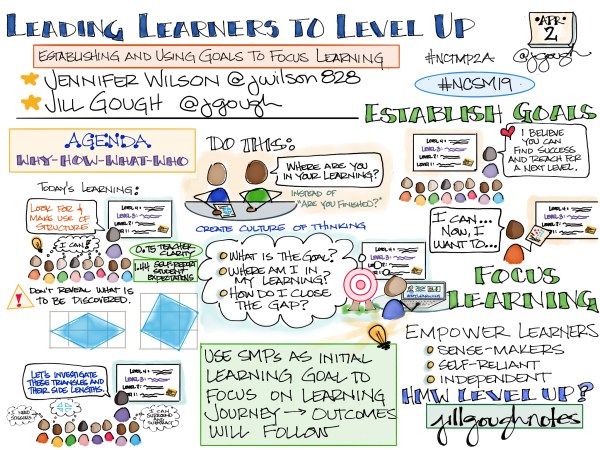 LEADING LEARNERS TO LEVEL UP
APR
2
ESTABLISHING AND USING GOALS TO FOCUS LEARNING
#NCTMP2A
@jgough
JENNIFER WILSON @jwilson828
JILL GOUGH @jgough
#NCSM19
AGENDA
WHY-HOW-WHAT-WHO
TODAY'S LEARNING:
LOOK FOR &
MAKE USE OF
STRUCTURE
LEVEL 4:
LEVEL 3:
LEVEL 2:
LEVEL 1:
I CAN!
0.75 TEACHER
CLARITY
1.44 SELF-REPORT
STUDENT
EXPECTATIONS
DON'T REVEAL WHAT IS
TO BE DISCOVERED.
LET'S INVESTIGATE
THESE TRIANGLES AND
THEIR SIDE LENGTHS.
LEVEL 4:
LEVEL 3:
LEVEL 2:
LEVEL 1:
I NEED
SCISSORS
I CAN
SURROUND
AND
SUBTRACT
DO THIS:
WHERE ARE YOU
IN YOUR LEARNING?
INSTEAD OF
"ARE YOU FINISHED?"
CREATE CULTURE OF THINKING
WHAT IS THE GOAL?
WHERE AM I IN
MY LEARNING?
HOW DO I CLOSE
THE GAP?
USE SMPs AS INITIAL
LEARNING GOAL TO
FOCUS ON LEARNING
JOURNEY → OUTCOMES
WILL FOLLOW
ESTABLISH GOALS
LEVEL 4:
LEVEL 3:
LEVEL 2:
LEVEL 1:
I BELIEVE
YOU CAN
FIND SUCCESS
AND REACH FOR
A NEXT LEVEL.
I CAN...
NOW, I
WANT TO...
FOCUS
LEARNING
EMPOWER LEARNERS
SENSE-MAKERS
SELF-RELIANT
INDEPENDENT
HMW LEVEL UP?
jillgoughnotes